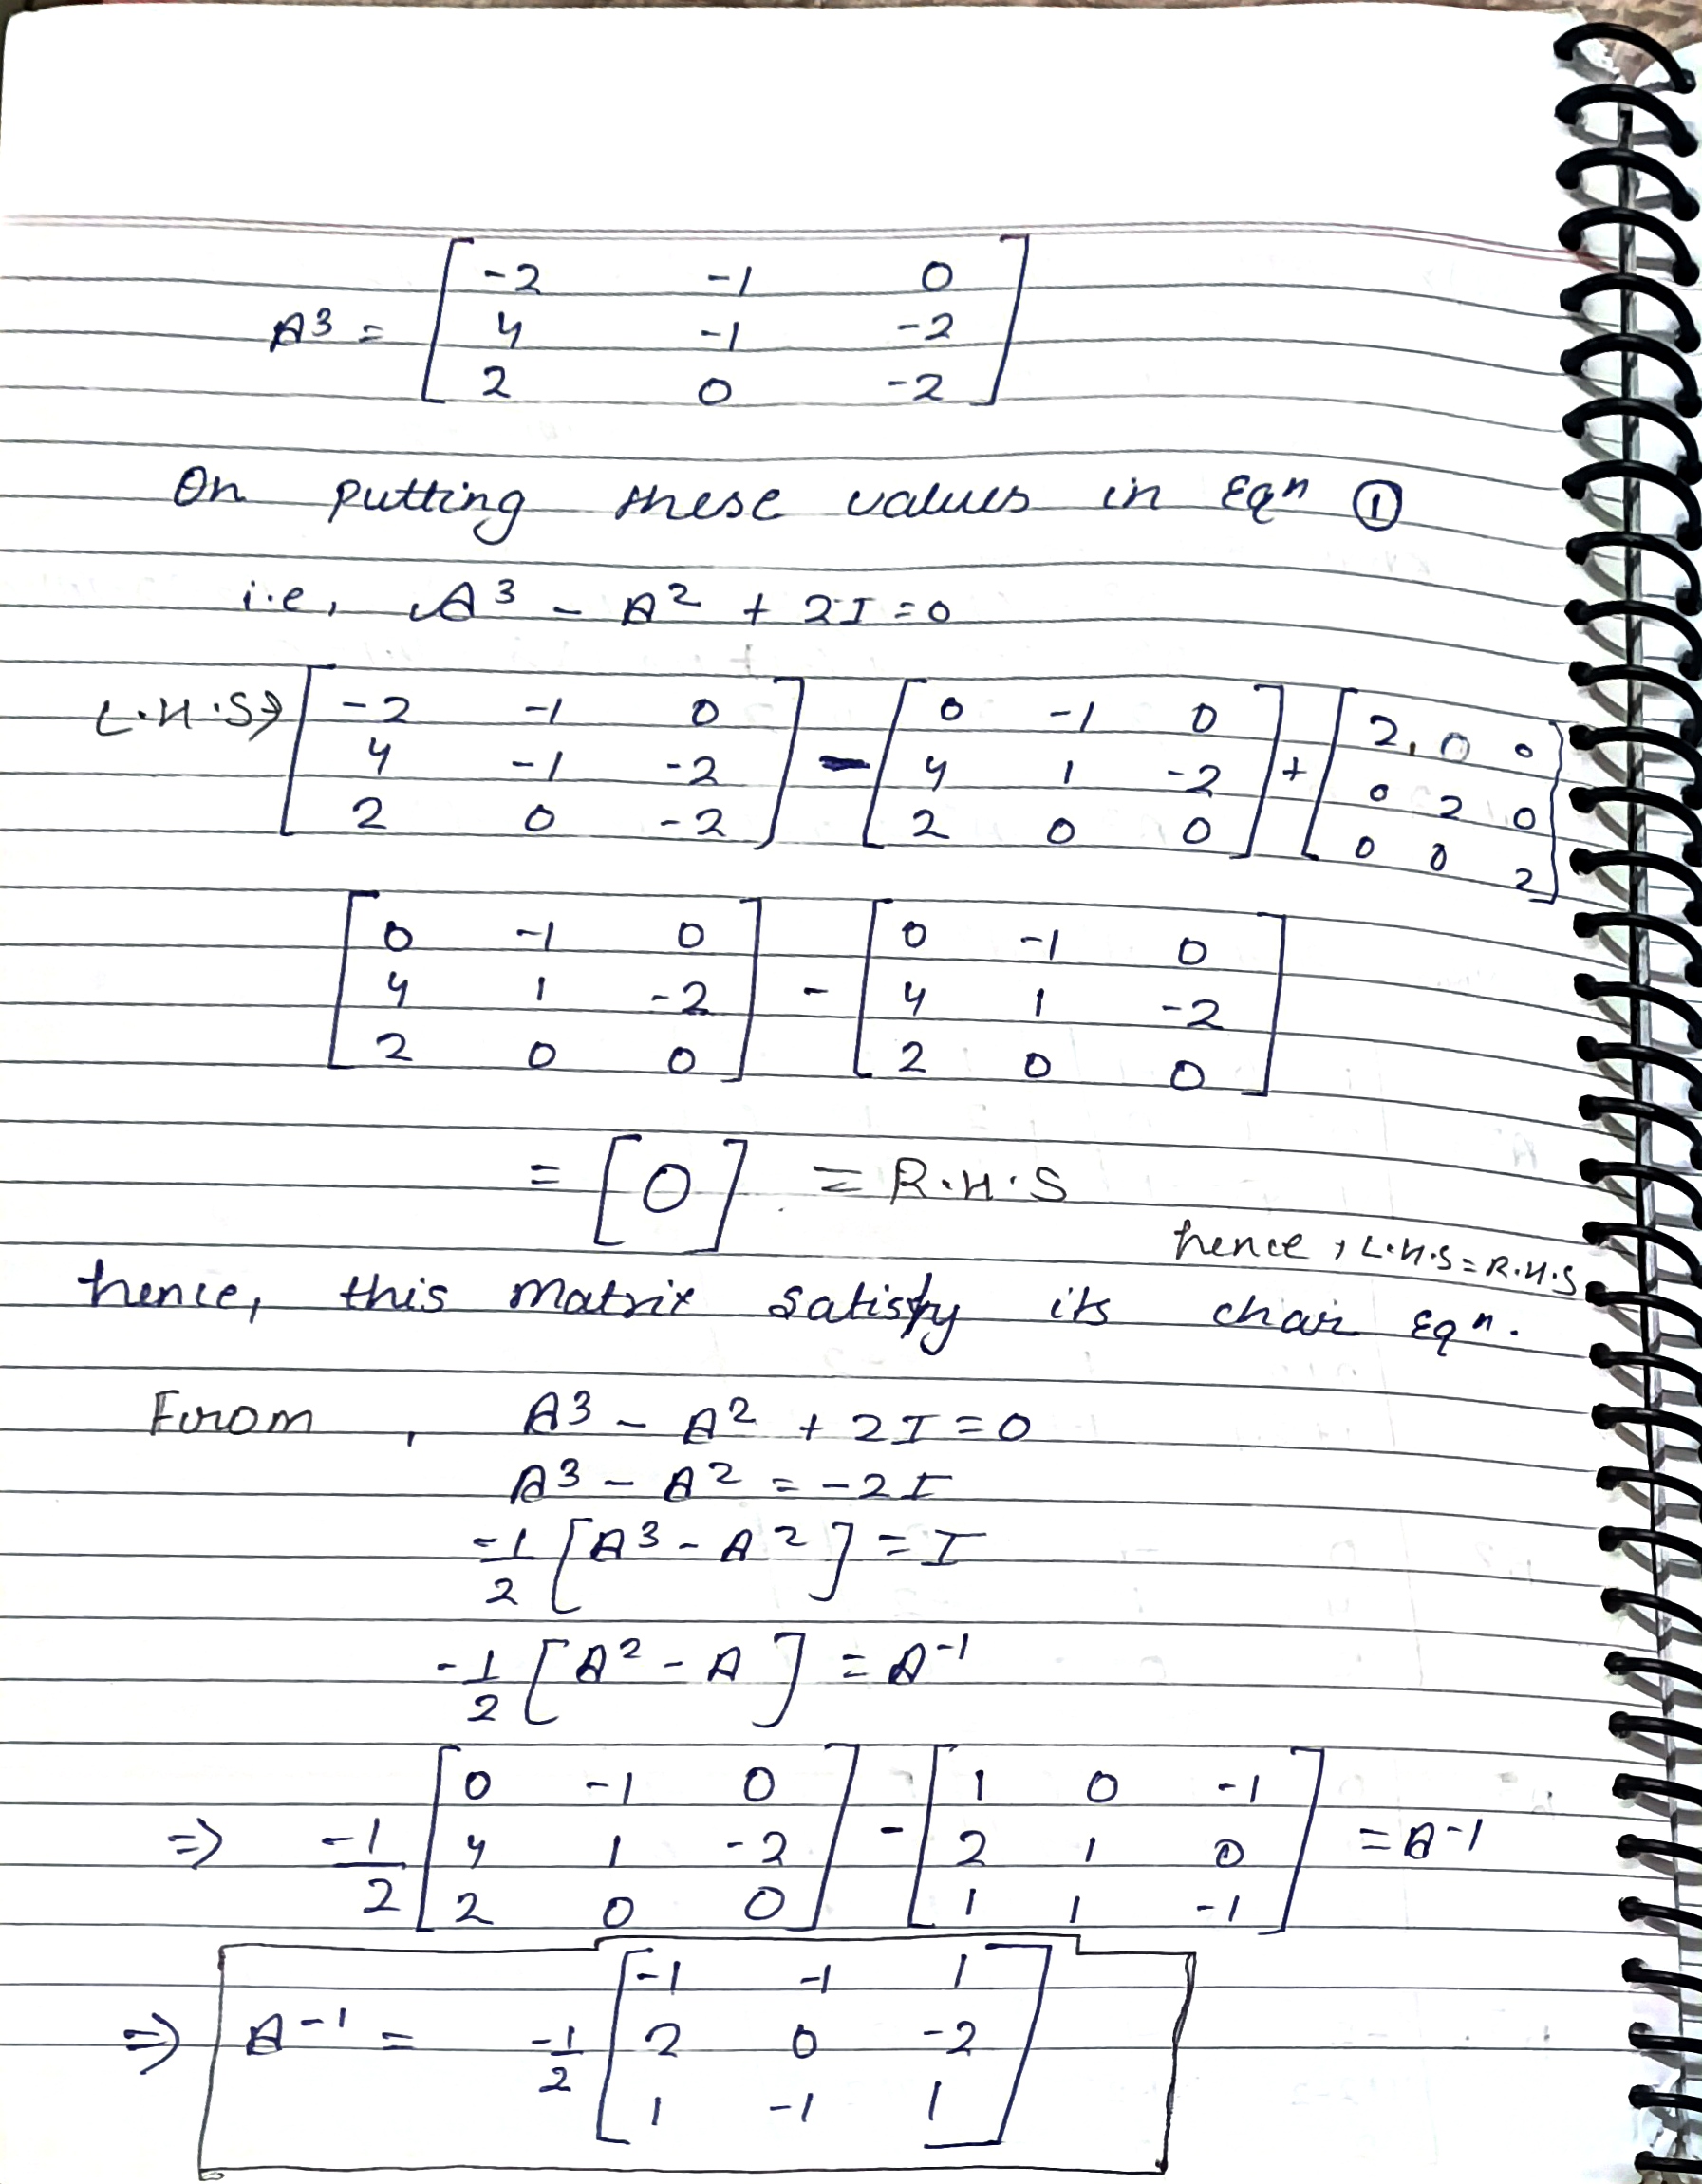 A³ = [ -2 -1 0
4 -1 -2
2 0 -2 ]
On putting these values in Eqⁿ ①
i.e, A³ - A² + 2I = 0
L.H.S⇒ [ -2 -1 0 ] - [ 0 -1 0 ] + [ 2, 0 0 ]
[ 4 -1 -2 ] [ 4 1 -2 ] [ 0 2 0 ]
[ 2 0 -2 ] [ 2 0 0 ] [ 0 0 2 ]
[ 0 -1 0 ] [ 0 -1 0 ]
[ 4 1 -2 ] - [ 4 1 -2 ]
[ 2 0 0 ] [ 2 0 0 ]
= [ 0 ] = R.H.S
hence, L.H.S = R.H.S
hence, this matrix satisfy its char Eqⁿ.
From, A³ - A² + 2I = 0
A³ - A² = -2I
-1/2 [ A³ - A² ] = I
-1/2 [ A² - A ] = A⁻¹
[ 0 -1 0 ] [ 1 0 -1 ]
⇒ -1/2 [ 4 1 -2 ] - [ 2 1 0 ] = A⁻¹
[ 2 0 0 ] [ 1 1 -1 ]
[ -1 -1 1 ]
⇒ A⁻¹ = -1/2 [ 2 0 -2 ]
[ 1 -1 1 ]